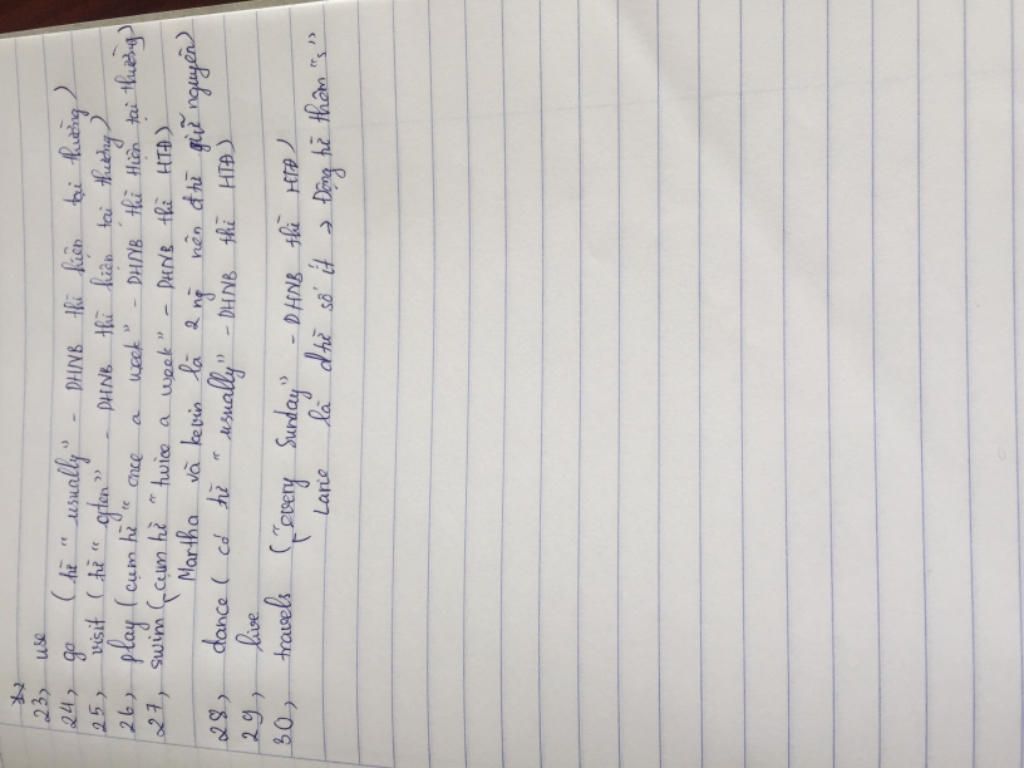 23, use
24, go ( từ " usually " - DHNB thì hiện tại thường )
25, visit ( từ " often " - DHNB thì hiện tại thường )
26, play ( cụm từ " once a week " - DHNB thì Hiện tại thường )
27, swim ( cụm từ " twice a week " - DHNB thì HTĐ )
Martha và kevin là 2 ng nên đtừ giữ nguyên
28, dance ( có từ " usually " - DHNB thì HTĐ )
29, live
30, travels ( " every Sunday " - DHNB thì HTĐ )
Larie là dtừ số ít → Động từ thêm "s"